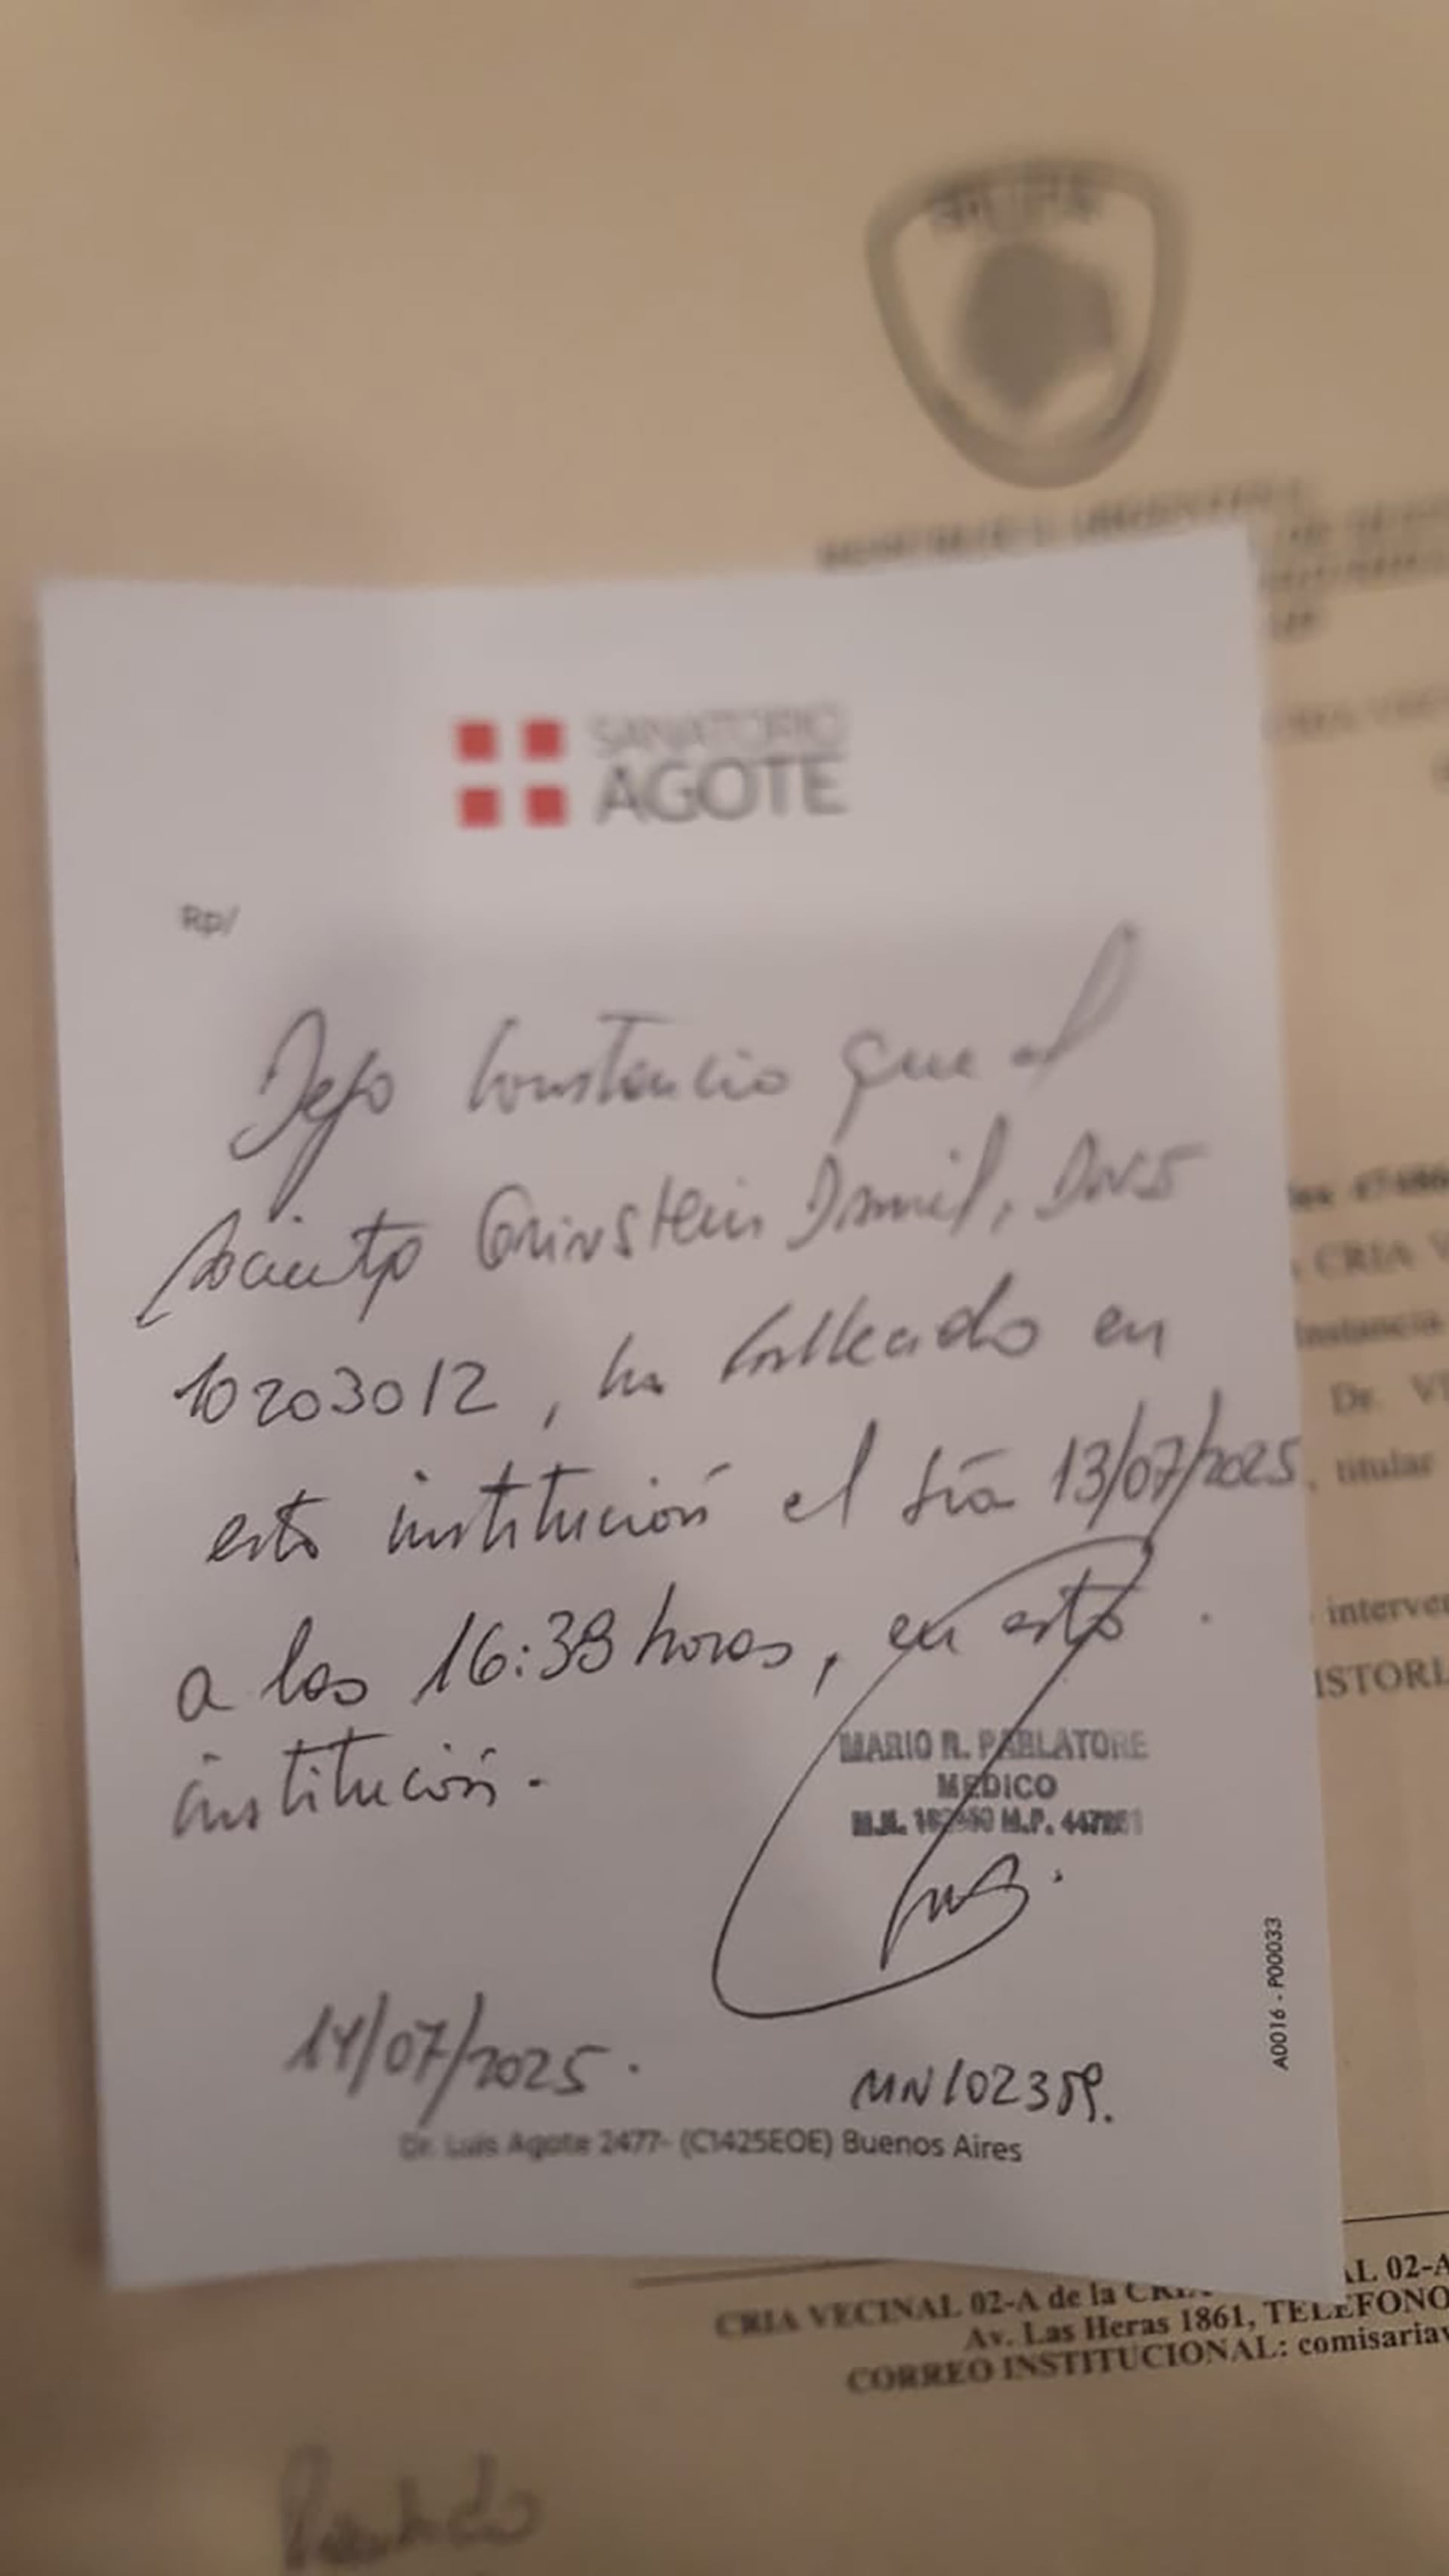 SANATORIO
AGOTE
Rp/
Dejo Constancia que el
paciente Grinstein Daniel, DNI
10203012, ha fallecido en
esta institución el día 13/07/2025
a las 16:38 horas, en esta
institución.-
MARIO R. PARLATORE
MEDICO
14/07/2025.
MN102359.
A0016 - P00033
Dr. Luis Agote 2477- (C1425EOE) Buenos Aires
CRIA V
Instancia
Dr. V
, titular
interve
CRIA VECINAL 02-A de la AL 02-A
Av. Las Heras 1861, TELEFONO
CORREO INSTITUCIONAL: comisariav